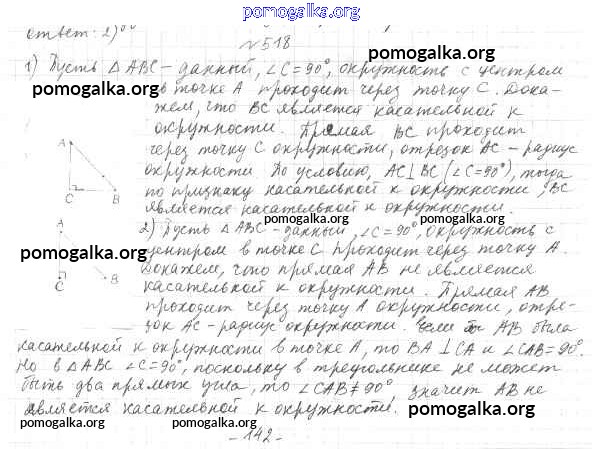 pomogalka.org
ответ: 2)
№518
1) Пусть △ABC - данный, ∠C=90°, окружность с центром
pomogalka.org
в точке A проходит через точку C. Дока-
pomogalka.org
жем, что BC является касательной к
окружности. Прямая BC проходит
pomogalka.org
через точку C окружности, отрезок AC - радиус
окружности. По условию, AC⊥BC (∠C=90°), тогда
pomogalka.org
по признаку касательной к окружности, BC
является касательной к окружности.
pomogalka.org
A
C
B
2) Пусть △ABC - данный, ∠C=90°, окружность с
центром в точке C проходит через точку A.
pomogalka.org
pomogalka.org
Докажем, что прямая AB не является
касательной к окружности. Прямая AB
pomogalka.org
проходит через точку A окружности, отре-
зок AC - радиус окружности. Если бы AB была
A
C
B
касательной к окружности в точке A, то BA⊥CA и ∠CAB=90°.
Но в △ABC ∠C=90°, поскольку в треугольнике не может
pomogalka.org
быть два прямых угла, то ∠CAB≠90° значит AB не
является касательной к окружности.
pomogalka.org
pomogalka.org
-142-